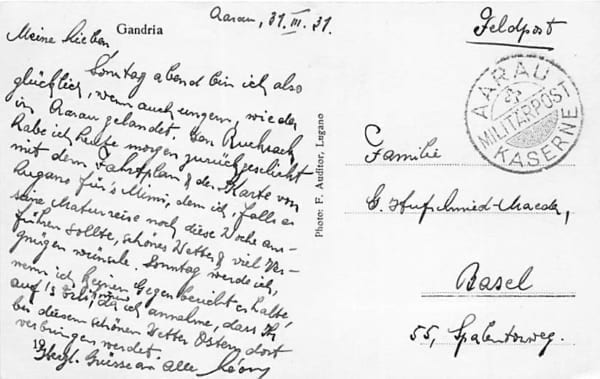 Gandria
Aarau, 31. III. 31.
Meine Lieben
Sonntag abend bin ich also
glücklich, wenn auch ungern, wieder
in Aarau gelandet. Den Rucksack
habe ich heute morgen zurückgeschickt
mit dem Fahrplan & der Karte von
Lugano für's Mimi, dem ich, falls es
seine Maturreise noch diese Woche aus-
führen sollte, schönes Wetter & viel Ver-
gnügen wünsche. Sonntag werde ich,
wenn ich keinen Gegenbericht erhalte,
auf's kommen, da ich annehme, dass Ihr
bei diesem schönen Wetter Ostern dort
verbringen werdet.
Herzl. Grüsse an Alle
Photo: F. Auditor, Lugano
Feldpost
AARAU
MILITÄRPOST
KASERNE
Familie
G. Hufschmid-Maeder,
Basel
55, Spalentorweg.